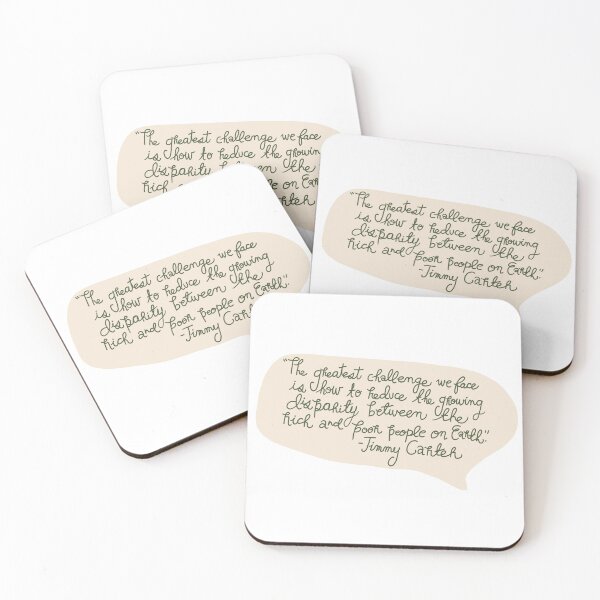 "The greatest challenge we face
is how to reduce the growing
disparity between the
rich people on
"The greatest challenge we face
is how to reduce the growing
disparity between the
rich and poor people on Earth."
-Jimmy Carter
"The greatest challenge we face
is how to reduce the growing
disparity between the
rich and poor people on Earth."
-Jimmy
"The greatest challenge we face
is how to reduce the growing
disparity between the
rich and poor people on Earth."
-Jimmy Carter